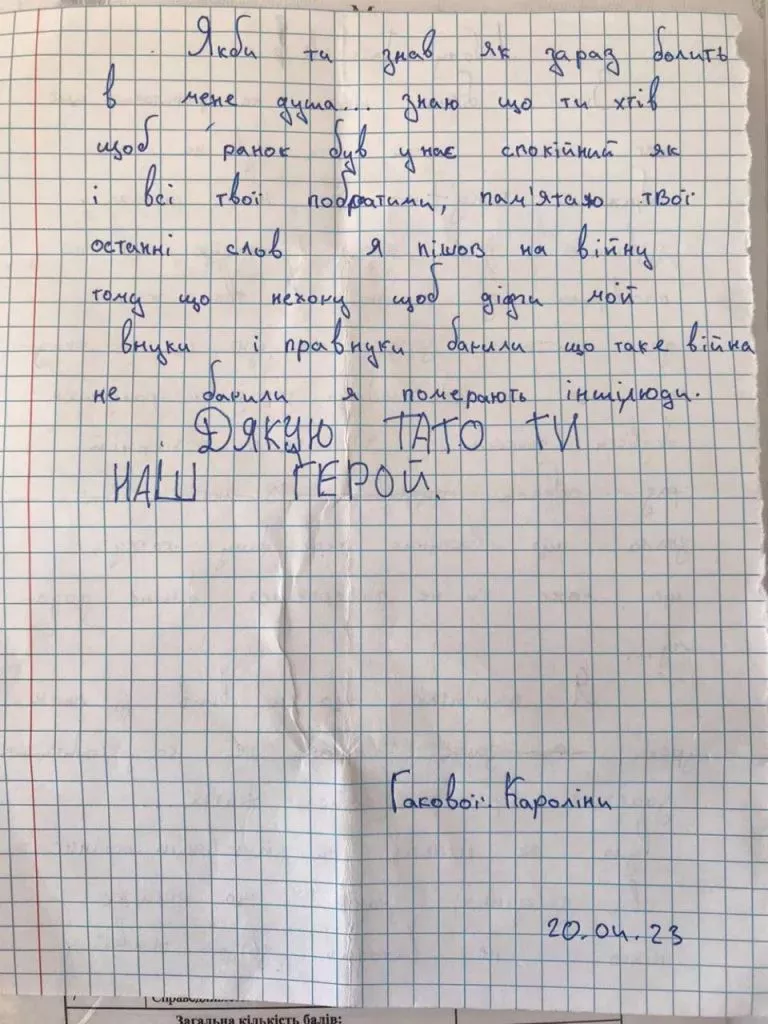 Якби ти знав як зараз болить
в мене душа... знаю що ти хтів
щоб ранок був унас спокійний як
і всі твої побратими, пам'ятаю твої
останні слов я пішов на війну
тому що нехочу щоб діди мой
внуки і правнуки бачили що таке війна
не бачили я померають іншілюди.
ДЯКУЮ ТАТО ТИ
НАШ ГЕРОЙ.
Гакової Кароліни
20.04.23
Загальна кількість балів: